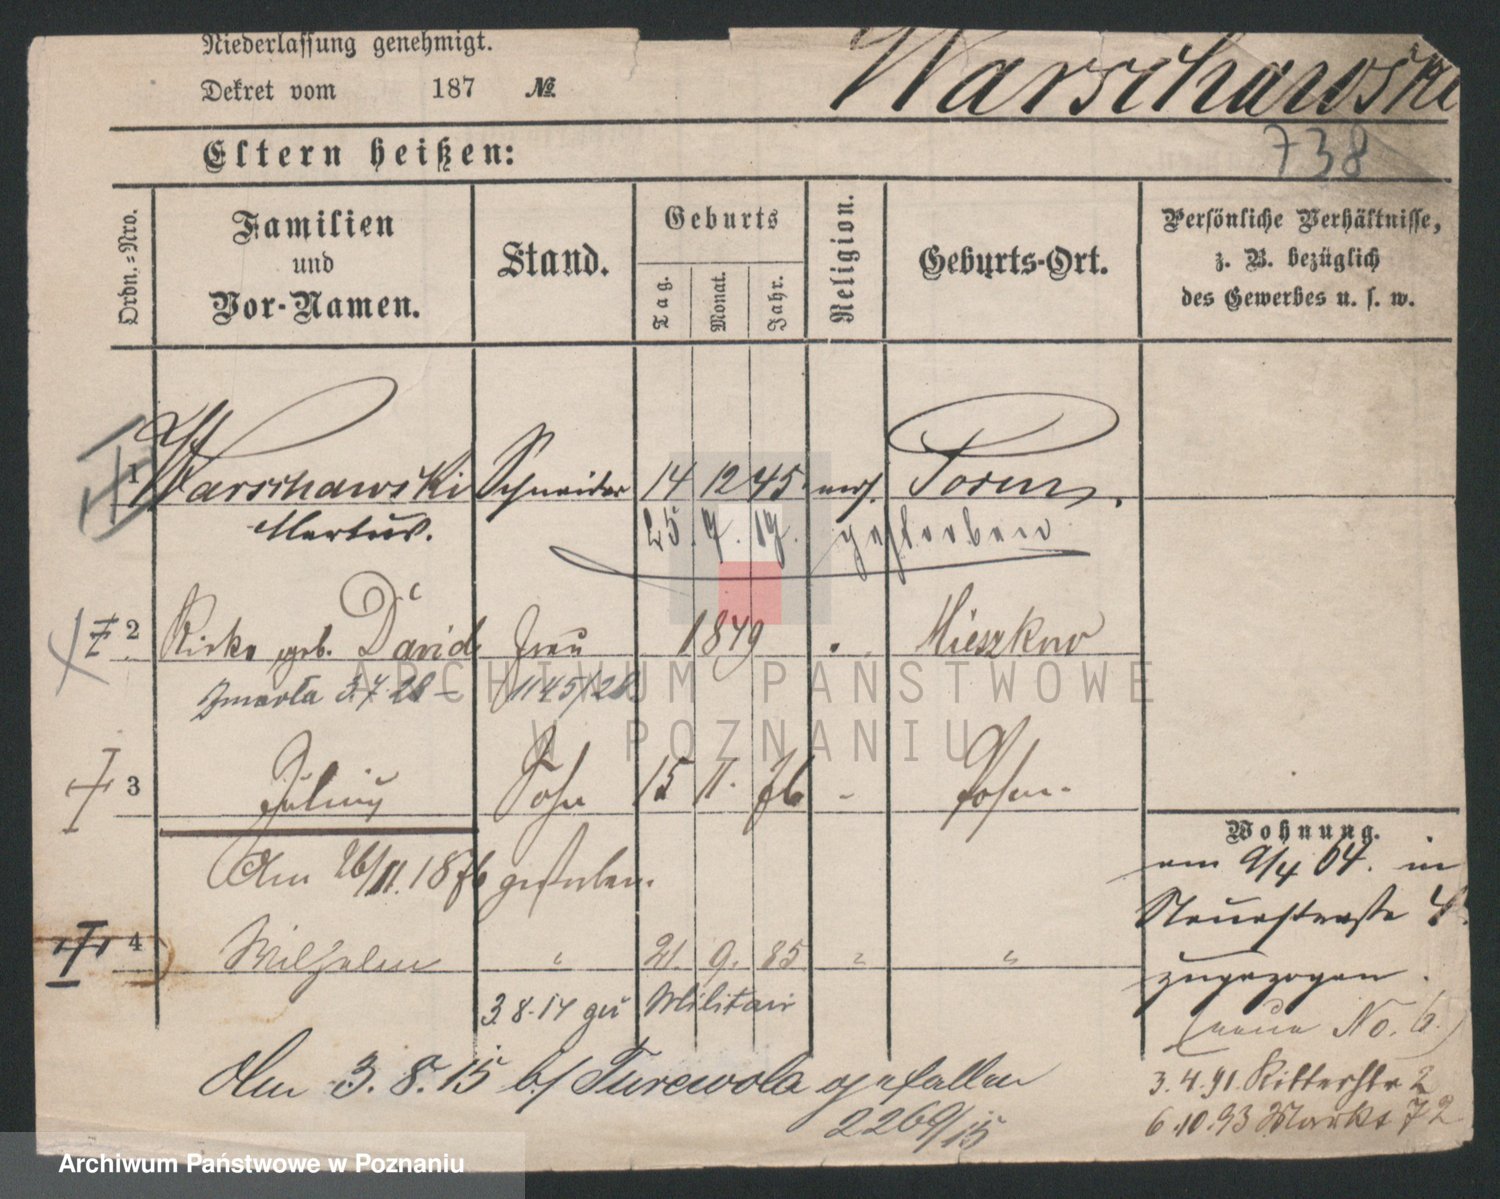 Niederlassung genehmigt.
Dekret vom 187 №
Warschawski
738
Eltern heißen:
Ordn.-Nro.
Familien und Vor-Namen.
Stand.
Geburts
Tag. Monat. Jahr.
Religion.
Geburts-Ort.
Persönliche Verhältnisse,
z. B. bezüglich
des Gewerbes u. s. w.
1 Warschawski Schneider 14 12 45. mos.
Markus.
25. 9. 19. gestorben
2 geb. David Frau 1849 Mieszkow
Zmarła 3.7.28 – 1145/28
3 Julius Sohn 15 11. 76 - Posen.
Am 26/11. 1876 gestorben.
4 Wilhelm " 21. 9. 85 " "
3.8.14 zu Militair
Am 3. 8. 15 b/ Turewola gefallen
2269/15
Wohnung.
am 9/4 64. in
Neuestraße 4.
zugezogen.
(neue No. 6.)
3.4.91. Ritterstr 2
6.10.93 Markt 72
ARCHIWUM PAŃSTWOWE
W POZNANIU
Archiwum Państwowe w Poznaniu